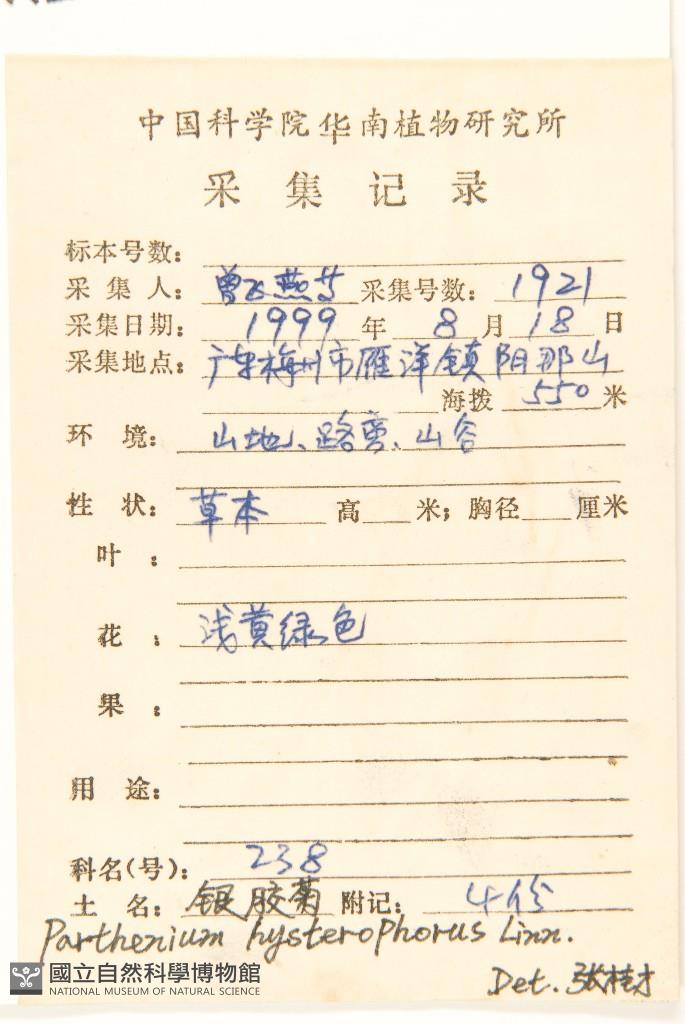 中国科学院华南植物研究所
采集记录
标本号数:
采集人: 曾飞燕等 采集号数: 1921
采集日期: 1999 年 8 月 18 日
采集地点: 广东梅州市雁洋镇阴那山
海拨 550 米
环境: 山地、路旁、山谷
性状: 草本 高 米; 胸径 厘米
叶:
花: 浅黄绿色
果:
用途:
科名(号): 238
土名: 银胶菊 附记: 4份
Parthenium hysterophorus Linn.
Det. 张桂才
國立自然科學博物館
NATIONAL MUSEUM OF NATURAL SCIENCE